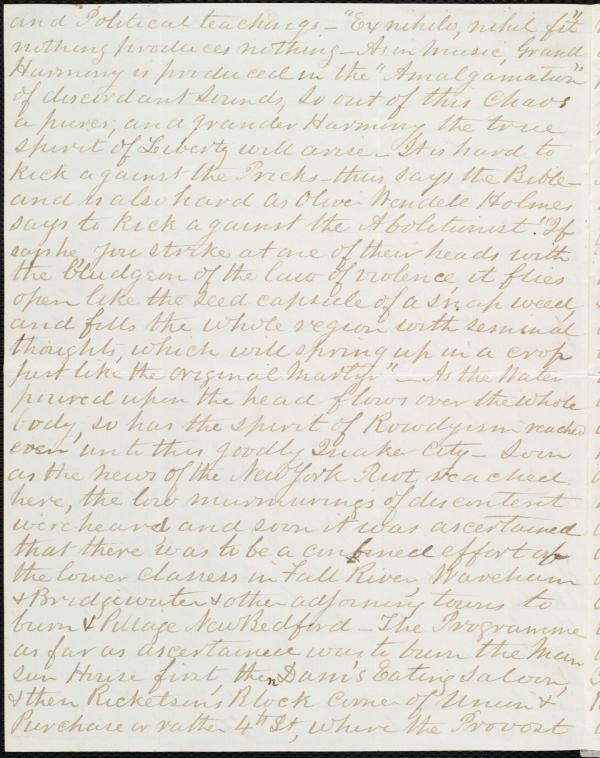 and Political teachings - "Ex nihilo, nihil fit"
nothing produces nothing - As in Music, Grand
Harmony is produced in the "Amalgamation"
of discordant sounds, so out of this Chaos
a purer, and grander Harmony the true
spirit of Liberty will arise - It is hard to
kick against the Pricks - thus says the Bible -
and is also hard as Oliver Wendell Holmes
says to kick against the Abolitionist. "If
says he, you strike at one of their heads with
the bludgeon of the law of violence, it flies
open like the seed capsule of a snap weed,
and fills the whole region with seminal
thoughts, which will spring up in a crop
just like the original Martyr" - As the Water
poured upon the head flows over the whole
body, so has the spirit of Rowdyism reached
even unto this goodly Quaker City - Soon
as the news of the New York Riot reached
here, the low murmurings of discontent
were heard and soon it was ascertained
that there was to be a combined effort of
the lower classes in Fall River, Wareham
& Bridgewater & other adjoining towns to
burn & Pillage New Bedford - The Programme
as far as ascertained was to burn the Man
sion House first, then Dam's Eating Saloon,
& then Ricketson's Block corner of Union &
Purchase or rather 4th St, where the Provost